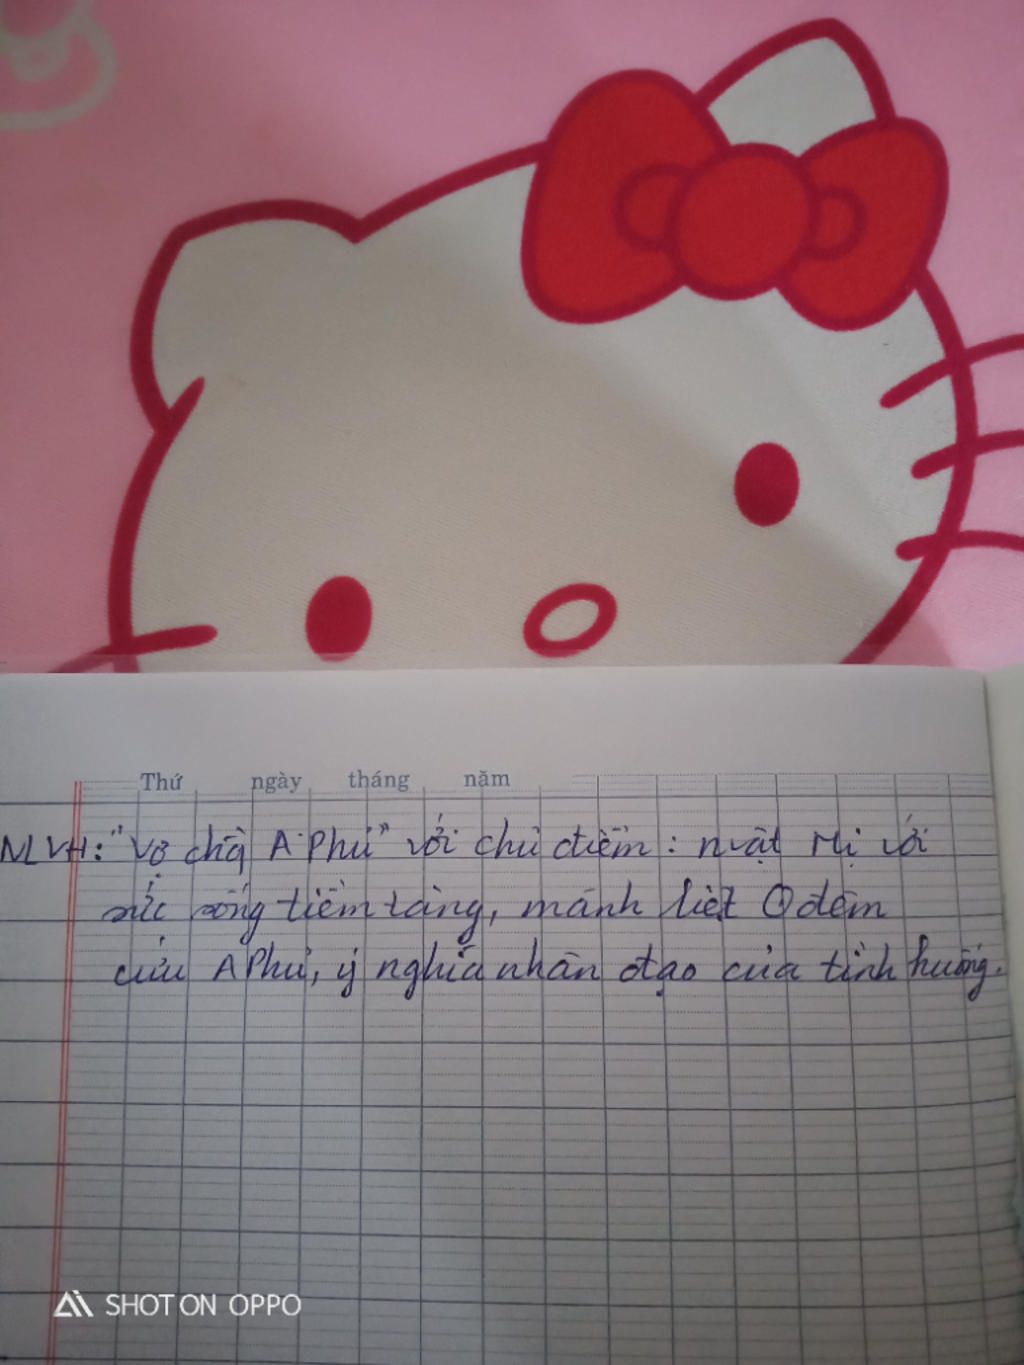 Thứ ngày tháng năm
NLVH: "Vợ chồng A Phủ" với chủ điểm: nvật Mị với
sức sống tiềm tàng, mãnh liệt đêm
cứu A Phủ, ý nghĩa nhân đạo của tình huống.
SHOT ON OPPO